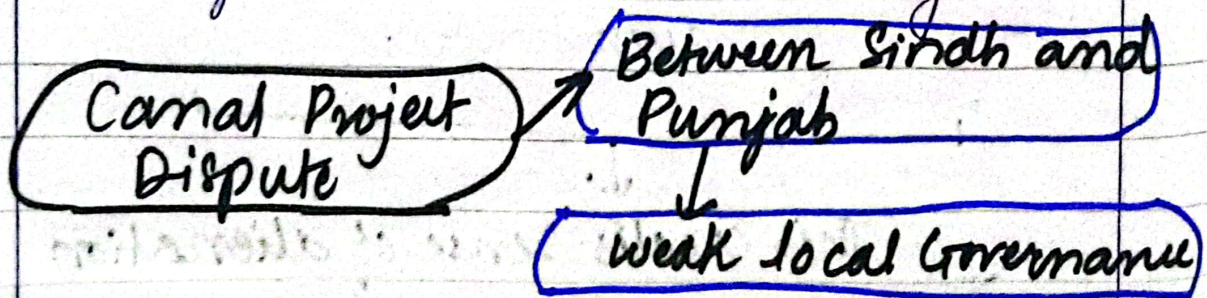 Canal Project
Dispute
Between Sindh and
Punjab
Weak local Governance